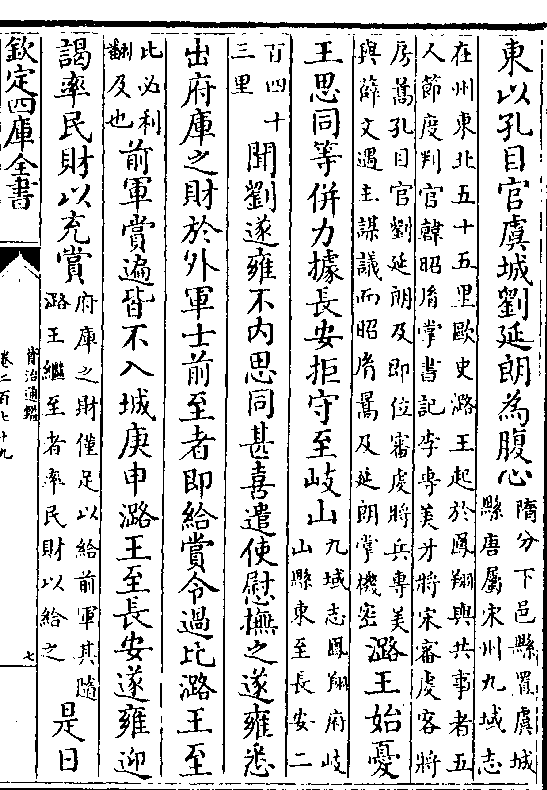 東以孔目官虞城劉延朗為腹心隋分下邑縣置虞城
縣唐屬宋州九域志
在州東北五十五里歐史潞王起於鳳翔與共事者五
人節度判官韓昭胤掌書記李專美牙將宋審虔客將
房暠孔目官劉延朗及即位審虔將兵專美
與薛文遇主謀議而昭胤暠及延朗掌機密潞王始憂
王思同等併力據長安拒守至岐山九域志鳳翔府岐
山縣東至長安二
百四十
三里聞劉遂雍不内思同甚喜遣使慰撫之遂雍悉
出府庫之財於外軍士前至者即給賞令過比潞王至
比必利
翻及也前軍賞遍皆不入城庚申潞王至長安遂雍迎
謁率民財以充賞府庫之財僅足以給前軍其隨
潞王繼至者率民財以給之是日
欽定四庫全書
資治通鑑
卷二百七十九
七